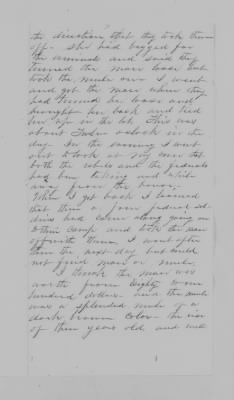 the direction that they took them
off. She had begged for
the animals and said they
turned the mare loose but
took the mule over. I went
and got the mare where they
had turned her loose and
brought her back and tied
her up in the lot. This was
about twelve o'clock in the
day. In the evening I went
out to look at my mare but
both the
had been taking and
away from the house.
When I got back I learned
that three or four federal sol-
diers had come along going on
to their camp and took the mare
off with them. I went after
them the next day but could
not find mare or mule.
I think the mare was
worth from eighty to one
hundred dollars and the mule
was a splendid mule of a
dark brown color. She was
of three years old and well